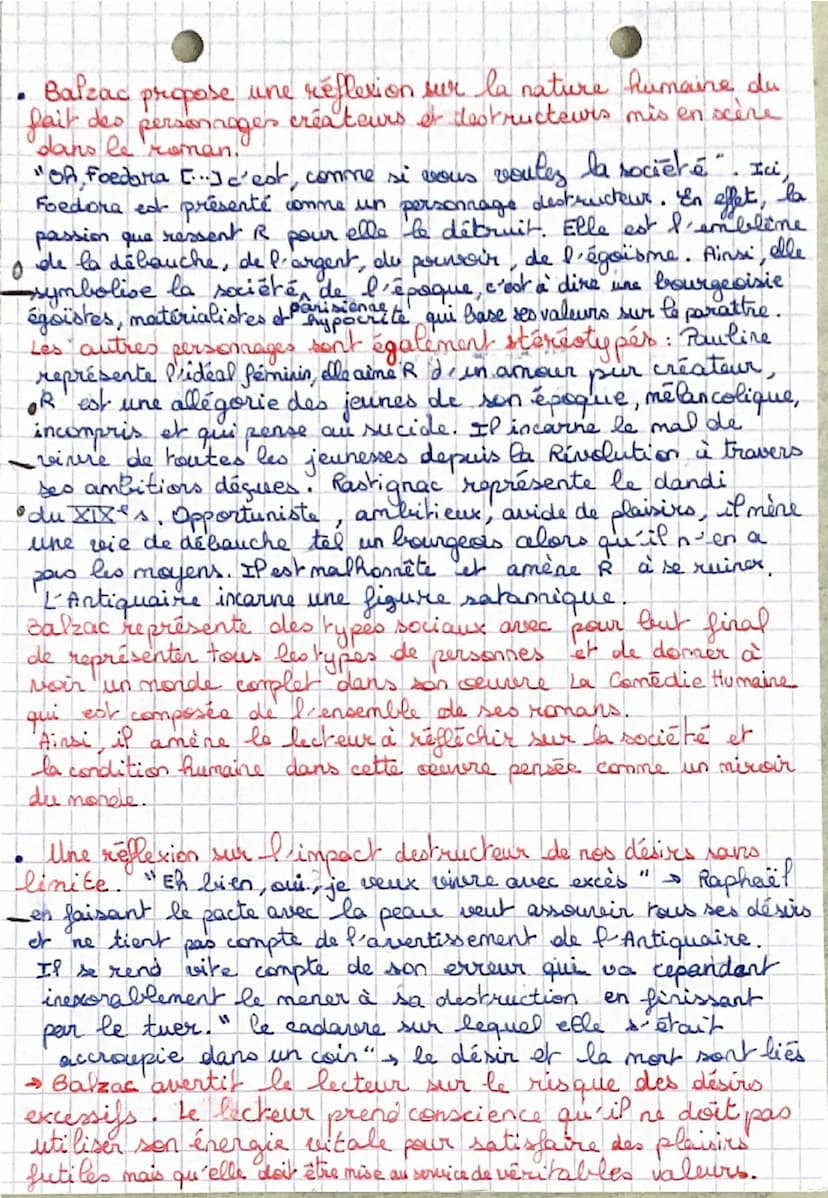 • Balzac propose une réflexion sur la nature humaine du
fait des personnages créateurs et destructeurs mis en scène
dans le roman.
"Oh, Foedora [...] c'est, comme si vous voulez la société". Ici,
Foedora est présenté comme un personnage destructeur. En effet, la
passion que ressent R pour elle le détruit. Elle est l'emblème
de la débauche, de l'argent, du pouvoir, de l'égoïsme. Ainsi, elle
symbolise la société de l'époque, c'est à dire une bourgeoisie
parisienne
égoïstes, matérialistes et hypocrite qui base ses valeurs sur le paraître.
Les autres personnages sont également stéréotypés : Pauline
représente l'idéal féminin, elle aime R d'un amour pur créateur,
• R est une allégorie des jeunes de son époque, mélancolique,
incompris et qui pense au sucide. Il incarne le mal de
vivre de toutes les jeunesses depuis la Révolution à travers
ses ambitions déçues. Rastignac représente le dandi
• du XIXe s. Opportuniste, ambitieux, avide de plaisirs, il mène
une vie de débauche tel un bourgeois alors qu'il n'en a
pas les moyens. Il est malhonnête et amène R à se ruiner.
L'Antiquaire incarne une figure satannique.
Balzac représente des types sociaux avec pour but final
de représenter tous les types de personnes et de donner à
voir un monde complet dans son oeuvre La Comédie Humaine
qui est composée de l'ensemble de ses romans.
Ainsi, il amène le lecteur à réfléchir sur la société et
la condition humaine dans cette oeuvre pensée comme un miroir
du monde.
• Une réflexion sur l'impact destructeur de nos désirs sans
limite. "Eh bien, oui, je veux vivre avec excès" → Raphaël
en faisant le pacte avec la peau veut assouvir tous ses désirs
et ne tient pas compte de l'avertissement de l'Antiquaire.
Il se rend vite compte de son erreur qui va cependant
inexorablement le mener à sa destruction en finissant
par le tuer. "le cadavre sur lequel elle s'était
accroupie dans un coin" → le désir et la mort sont liés
→ Balzac avertit le lecteur sur le risque des désirs
excessifs. Le lecteur prend conscience qu'il ne doit pas
utiliser son énergie vitale pour satisfaire des plaisirs
futiles mais qu'elle doit être mise au service de véritables valeurs.